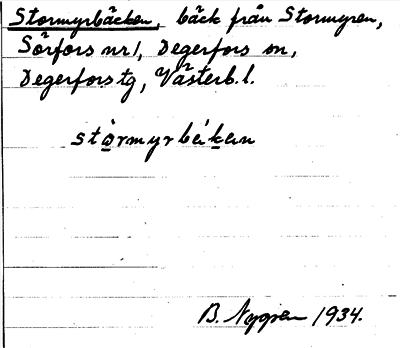 Stormyrbäcken, bäck från Stormyren,
Sörfors nr 1, Degerfors sn,
Degerfors tg, Västerb. l.
stòrmyrbäkan
B. Nygren 1934.